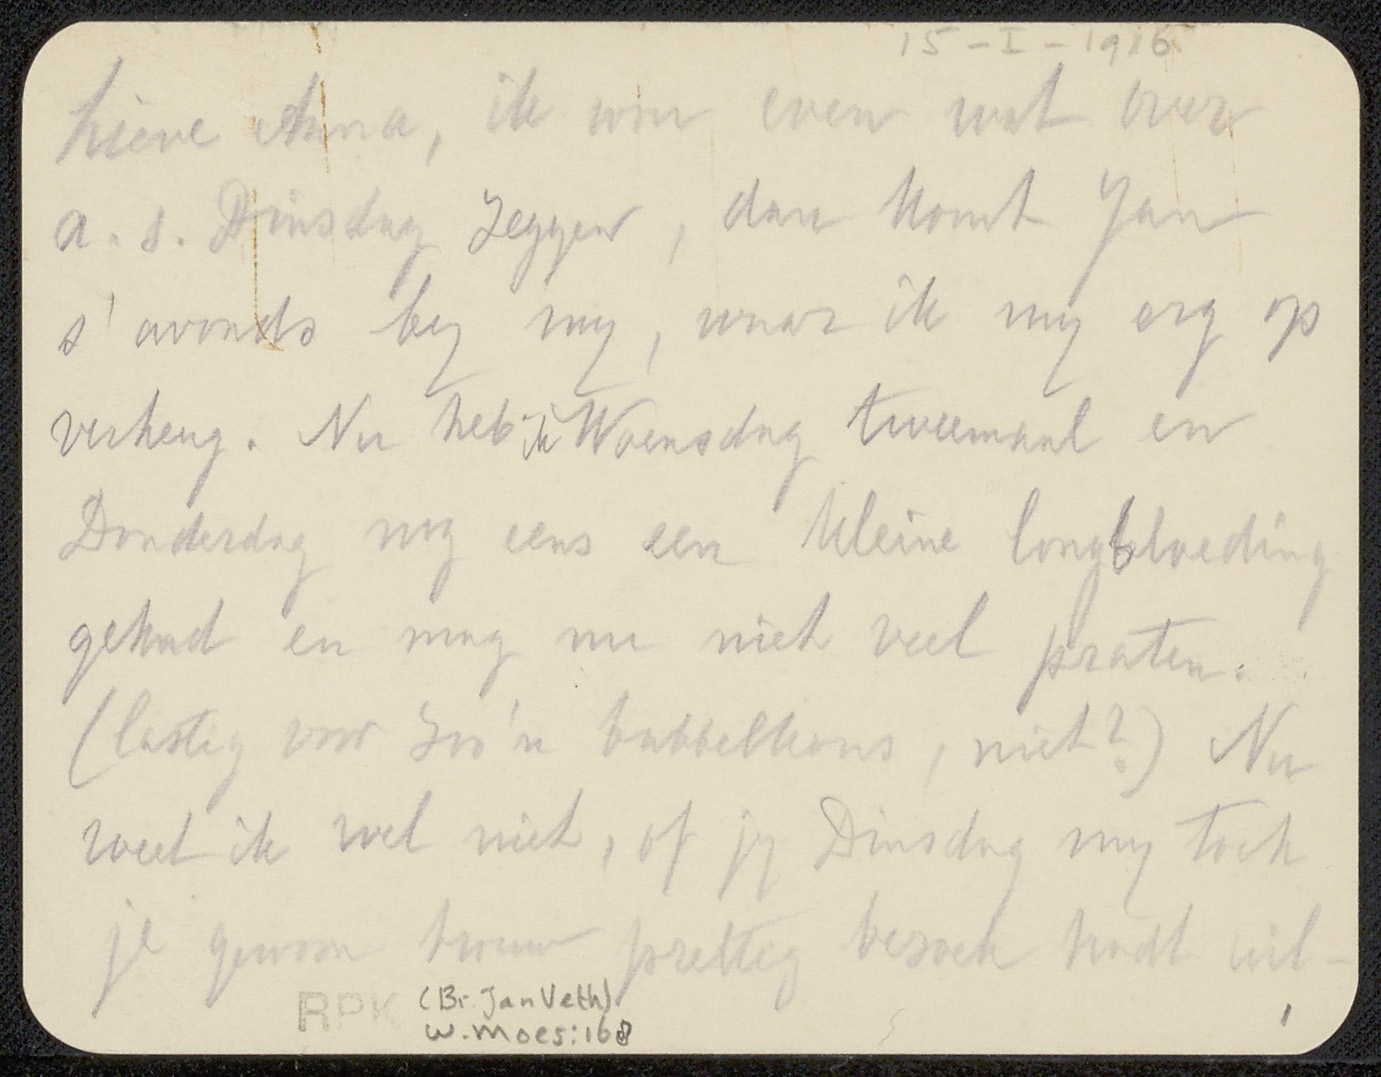 15-I-1916
Lieve Anna, ik wou even wat over
a. s. Dinsdag zeggen, dan komt Jan
s' avonds by my, waar ik my erg op
verheug. Nu heb ik Woensdag tweemaal en
Donderdag nog eens een kleine longbloeding
gehad en mag nu niet veel praten.
(lastig voor zoo'n babbelkous, niet?) Nu
weet ik wel niet, of jy Dinsdag my toch
je gewoon trouw prettig bezoek hadt wil-
RPK (Br. Jan Veth)
W. Moes: 168